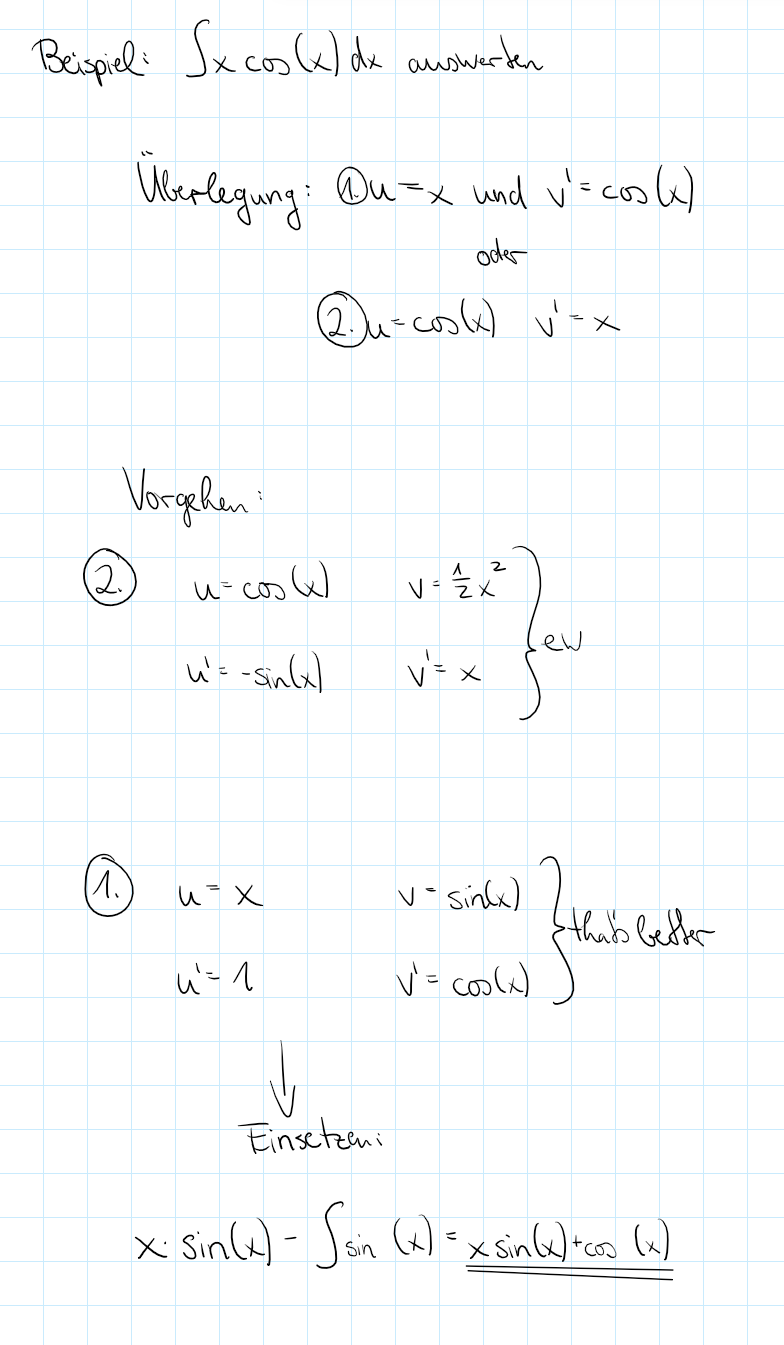 Beispiel: ∫x cos(x) dx auswerten
Überlegung: ①u=x und v'=cos(x)
oder
②u=cos(x) v'=x
Vorgehen:
② u=cos(x) v=1/2 x² } ew
u'=-sin(x) v'=x
① u=x v=sin(x) } that's better
u'=1 v'=cos(x)
↓
Einsetzen:
x·sin(x) - ∫sin (x) = x sin(x)+cos (x)